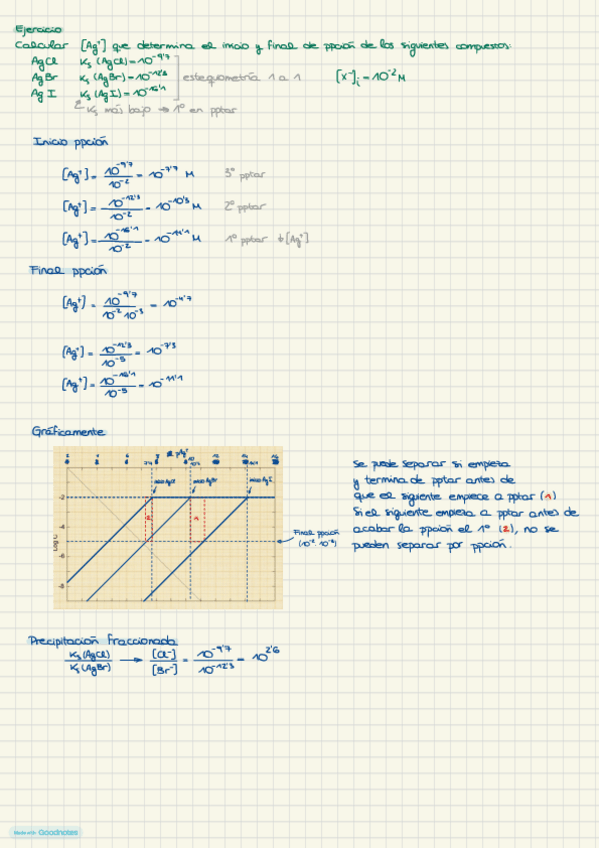 Ejercicio
Calcular [Ag⁺] que determina el inicio y final de ppción de los siguientes compuestos:
AgCl Ks (AgCl) = 10^-9'7
AgBr Ks (AgBr) = 10^-12'3 estequiometría 1 a 1 [X⁻]i = 10^-2 M
AgI Ks (AgI) = 10^-16'1
Ks más bajo → 1º en pptar
Inicio ppción
[Ag⁺] = 10^-9'7 / 10^-2 = 10^-7'7 M 3º pptar
[Ag⁺] = 10^-12'3 / 10^-2 = 10^-10'3 M 2º pptar
[Ag⁺] = 10^-16'1 / 10^-2 = 10^-14'1 M 1º pptar ↓[Ag⁺]
Final ppción
[Ag⁺] = 10^-9'7 / 10^-2 10^-3 = 10^-4'7
[Ag⁺] = 10^-12'3 / 10^-5 = 10^-7'3
[Ag⁺] = 10^-16'1 / 10^-5 = 10^-11'1
Gráficamente
pAg⁺
inicio AgCl inicio AgBr inicio AgI
-2
-4
-6
-8
2 1
Final ppción
Se puede separar si empieza
y termina de pptar antes de
que el siguiente empiece a pptar (1)
Si el siguiente empieza a pptar antes de
acabar la ppción el 1º (2), no se
pueden separar por ppción.
Precipitación fraccionada
Ks(AgCl) / Ks(AgBr) → [Cl⁻] / [Br⁻] = 10^-9'7 / 10^-12'3 = 10^2'6
Made with Goodnotes